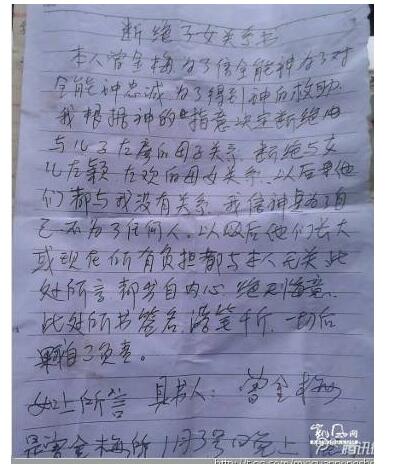 断绝子女关系书
本人曾金梅为了信全能神为了对
全能神忠诚为了得到神的救助
我根据神的"指意决定断绝由
与儿子左彦的母子关系.断绝与女
儿左颖左欢的母女关系.以后其他
们都与我没有关系.我信神是为了自
己不为了任何人.以及后他们长大
或现在所有负担都与本人无关此
处所言都出自内心绝别
此处所书签名落笔千斤.一切后
果自己负责。
如上所言 具书人: 曾金梅
是曾金梅所 1月3号的晚上
腾讯